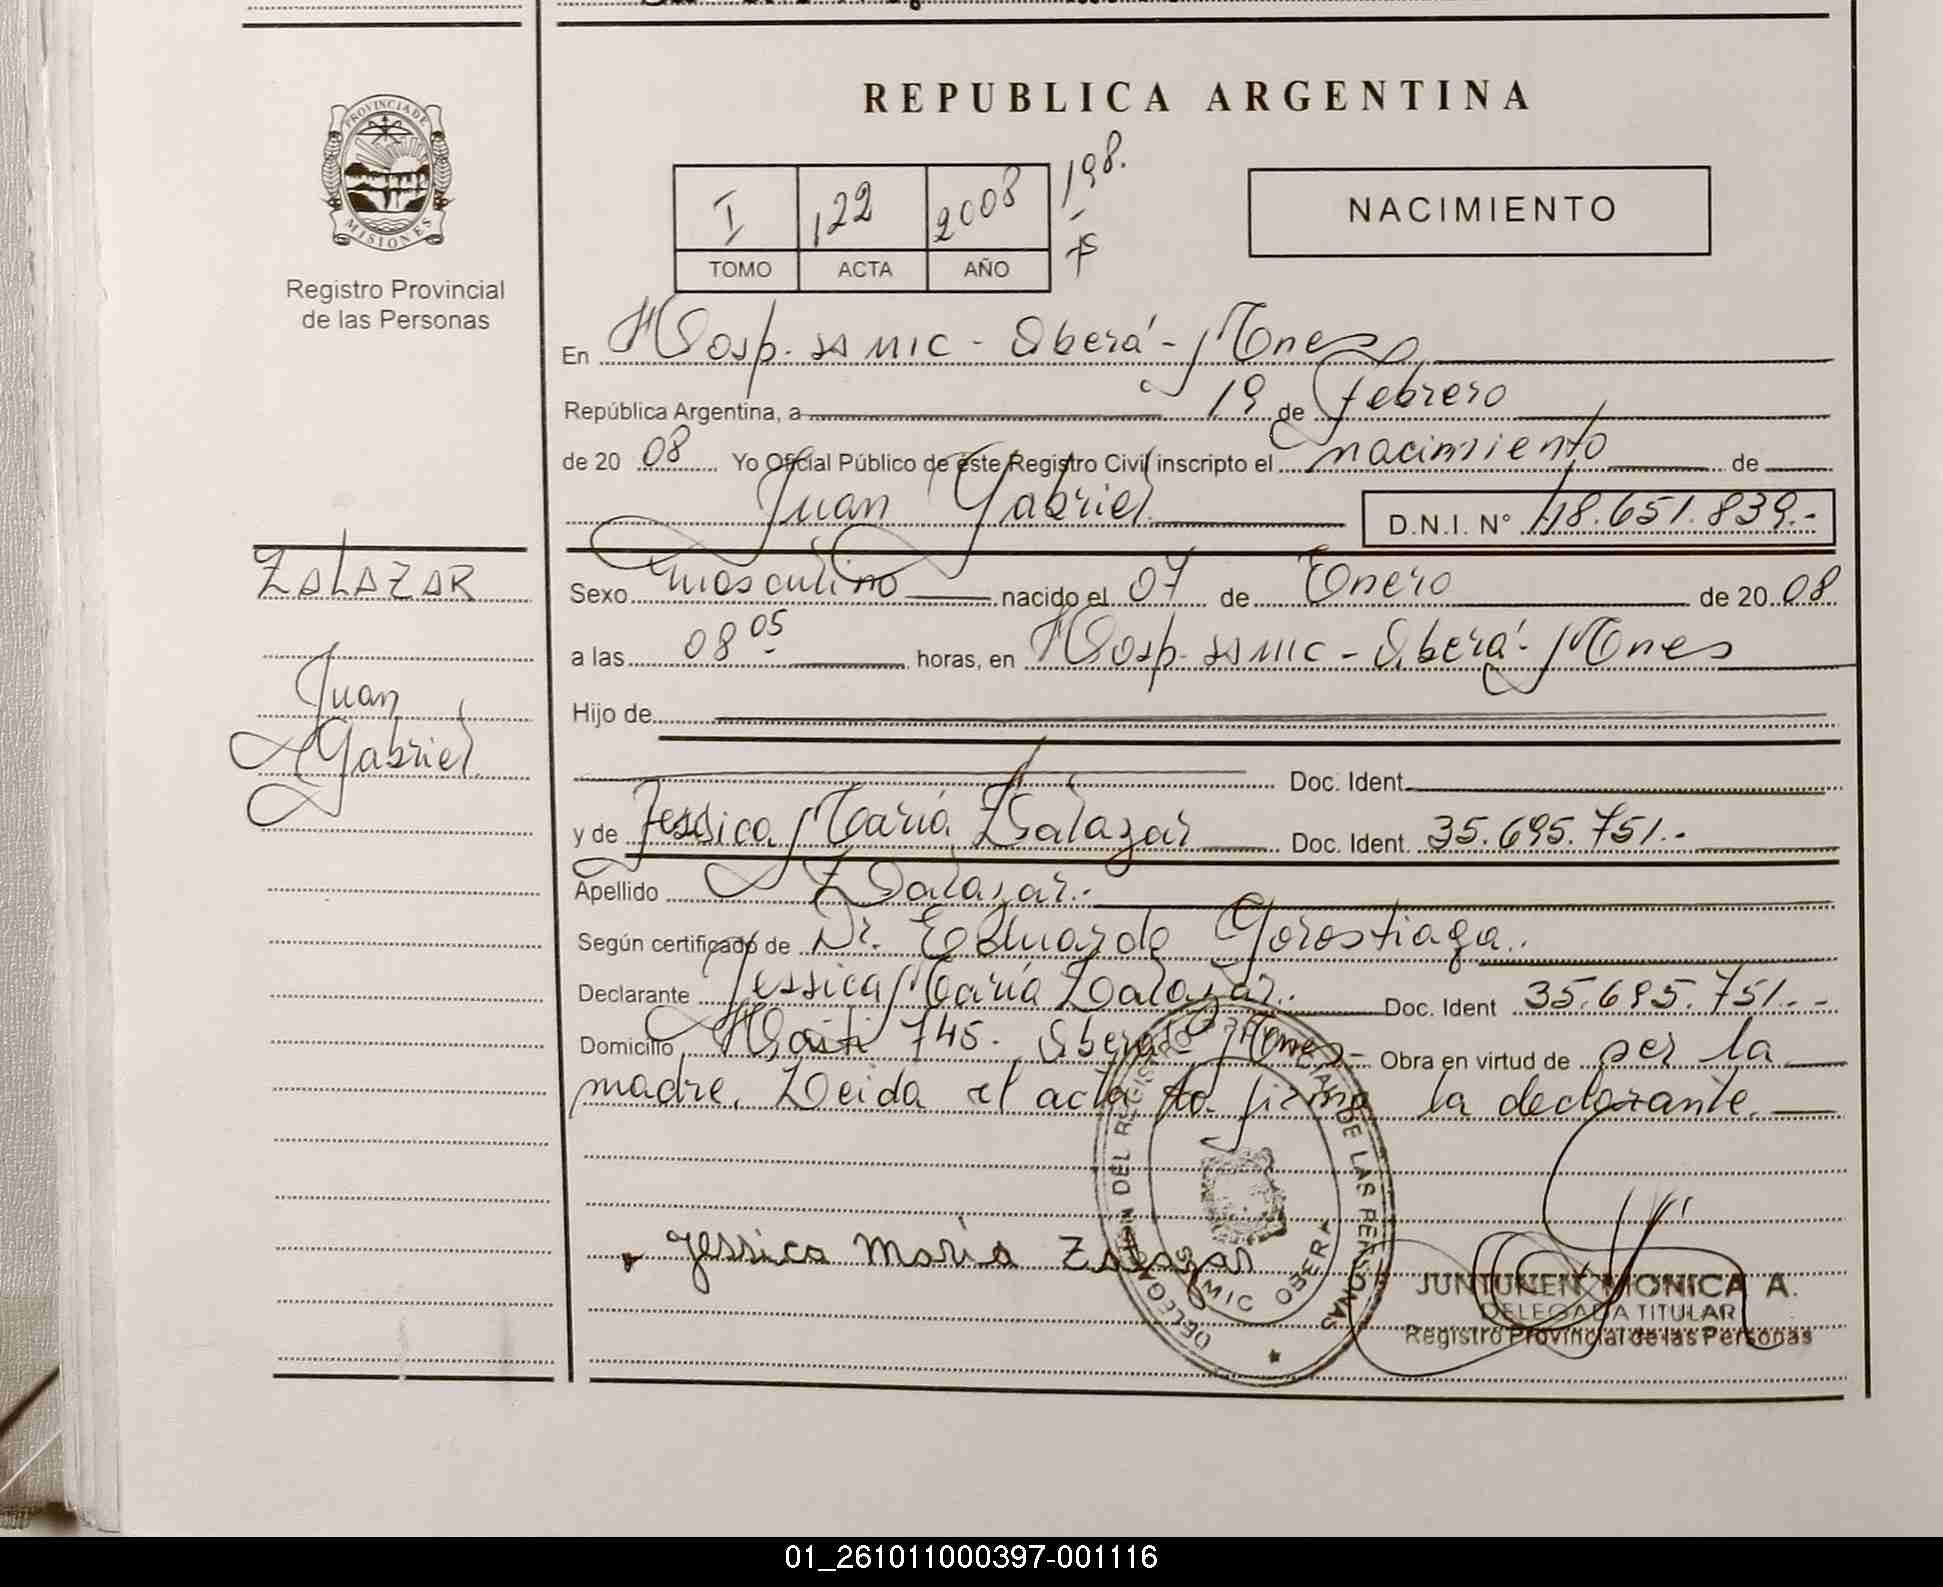 REPUBLICA ARGENTINA
PROVINCIA DE
MISIONES
Registro Provincial
de las Personas
I 122 2008 198.
TOMO ACTA AÑO
NACIMIENTO
En Hosp. SAMIC - Oberá - Mnes
República Argentina, a 19 de Febrero
de 20 08 Yo Oficial Público de este Registro Civil inscripto el nacimiento de
Juan Gabriel D.N.I. N° 48.651.839.-
ZALAZAR
Juan
Gabriel
Sexo masculino nacido el 07 de Enero de 20 08
a las 08 05 horas, en Hosp. SAMIC - Oberá - Mnes
Hijo de
Doc. Ident.
y de Jessica María Zalazar Doc. Ident. 35.695.751.-
Apellido Zalazar.
Según certificado de Dr. Eduardo Gorostiaga.
Declarante Jessica María Zalazar. Doc. Ident 35.695.751.-
Domicilio Haití 745. Oberá - Mnes - Obra en virtud de ser la
madre. Leida el acta la firma la declarante.
Jessica Maria Zalazar
DELEGACION DEL REGISTRO PROVINCIAL DE LAS PERSONAS
SAMIC OBERA
JUNTUNEN MONICA A.
DELEGADA TITULAR
Registro Provincial de las Personas
01_261011000397-001116